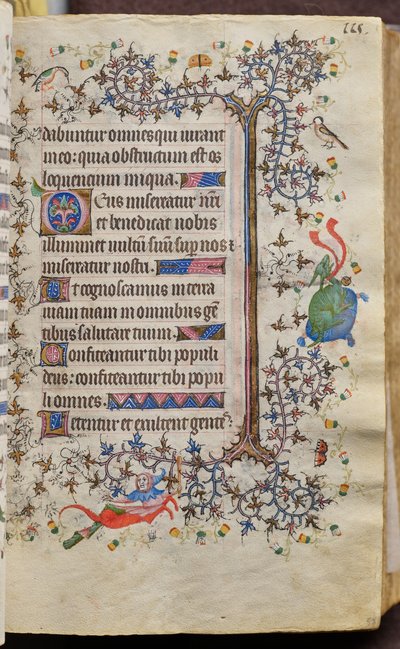 115.
dabuntur omnes qui iurant
in eo: quia obstructum est os
loquencium iniqua.
Deus misereatur nr̄i
et benedicat nobis
illuminet vultū suū sup nos ⁊
misereatur nostri.
Ut cognoscamus in terra
uiam tuam in omnibus gē
tibus salutare tuum.
Confiteantur tibi populi
deus: confiteantur tibi popu
li omnes.
Letentur et exultent gentes